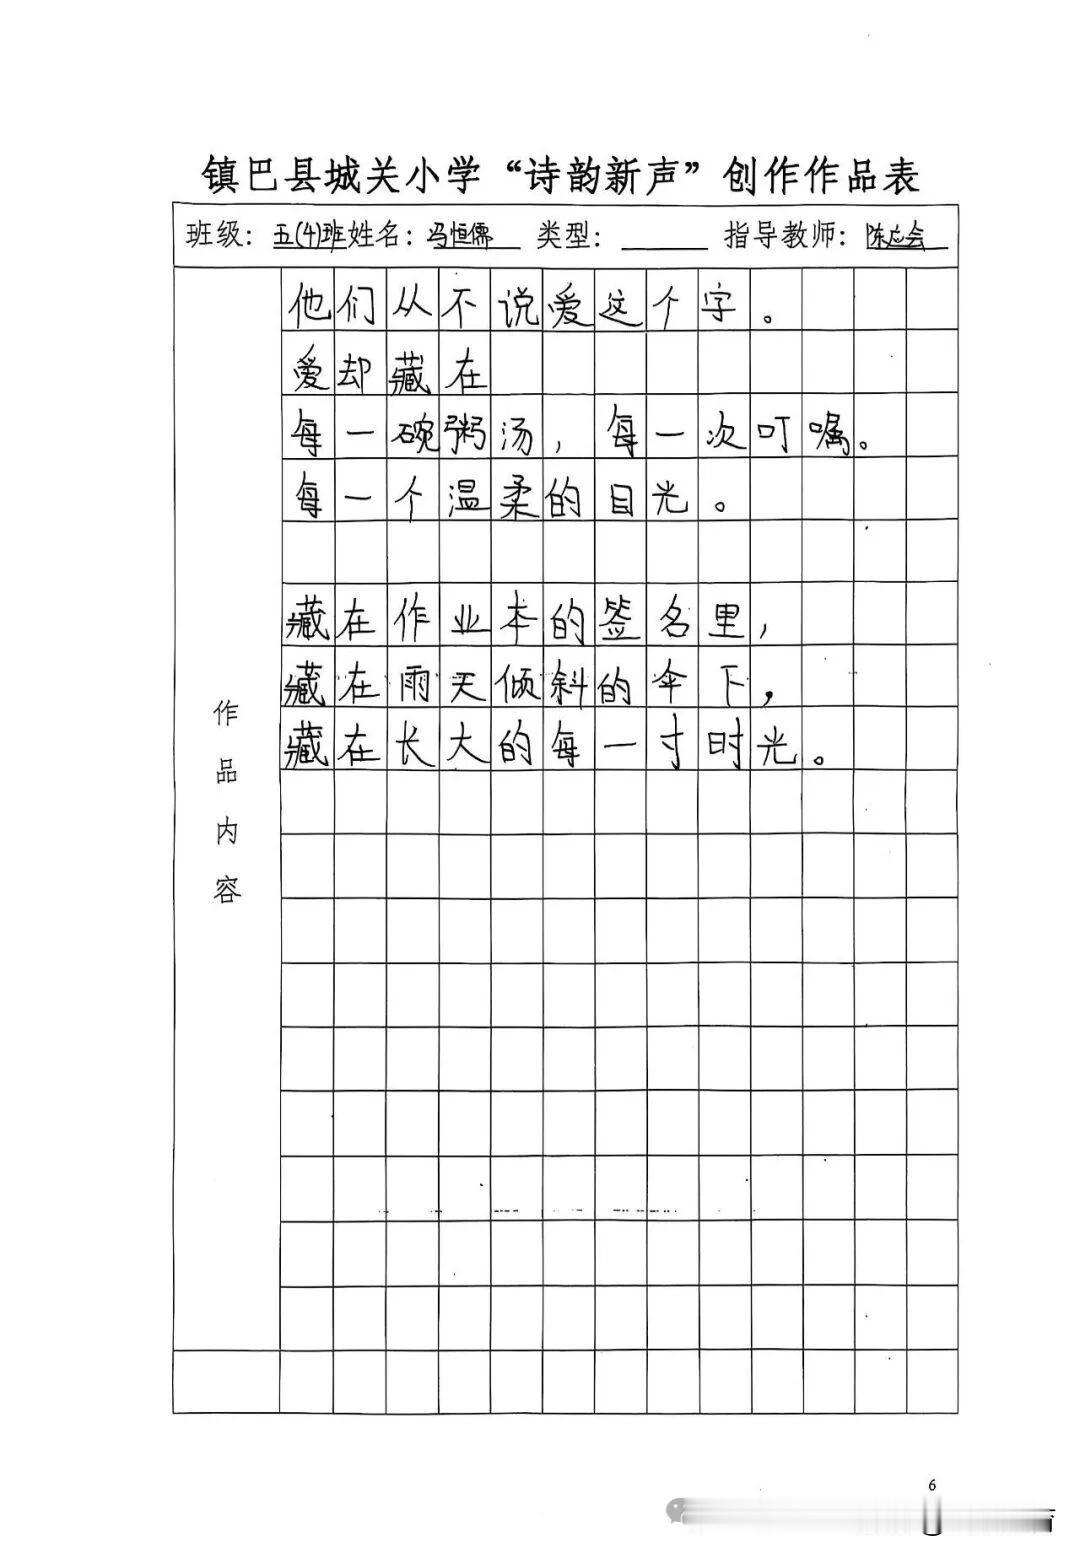 镇巴县城关小学“诗韵新声”创作作品表
班级：五(4)班姓名：冯恒儒 类型： 指导教师：陈应会
他们从不说爱这个字。
爱却藏在
每一碗粥汤，每一次叮嘱。
每一个温柔的目光。
藏在作业本的签名里，
藏在雨天倾斜的伞下，
藏在长大的每一寸时光。
作品内容
6